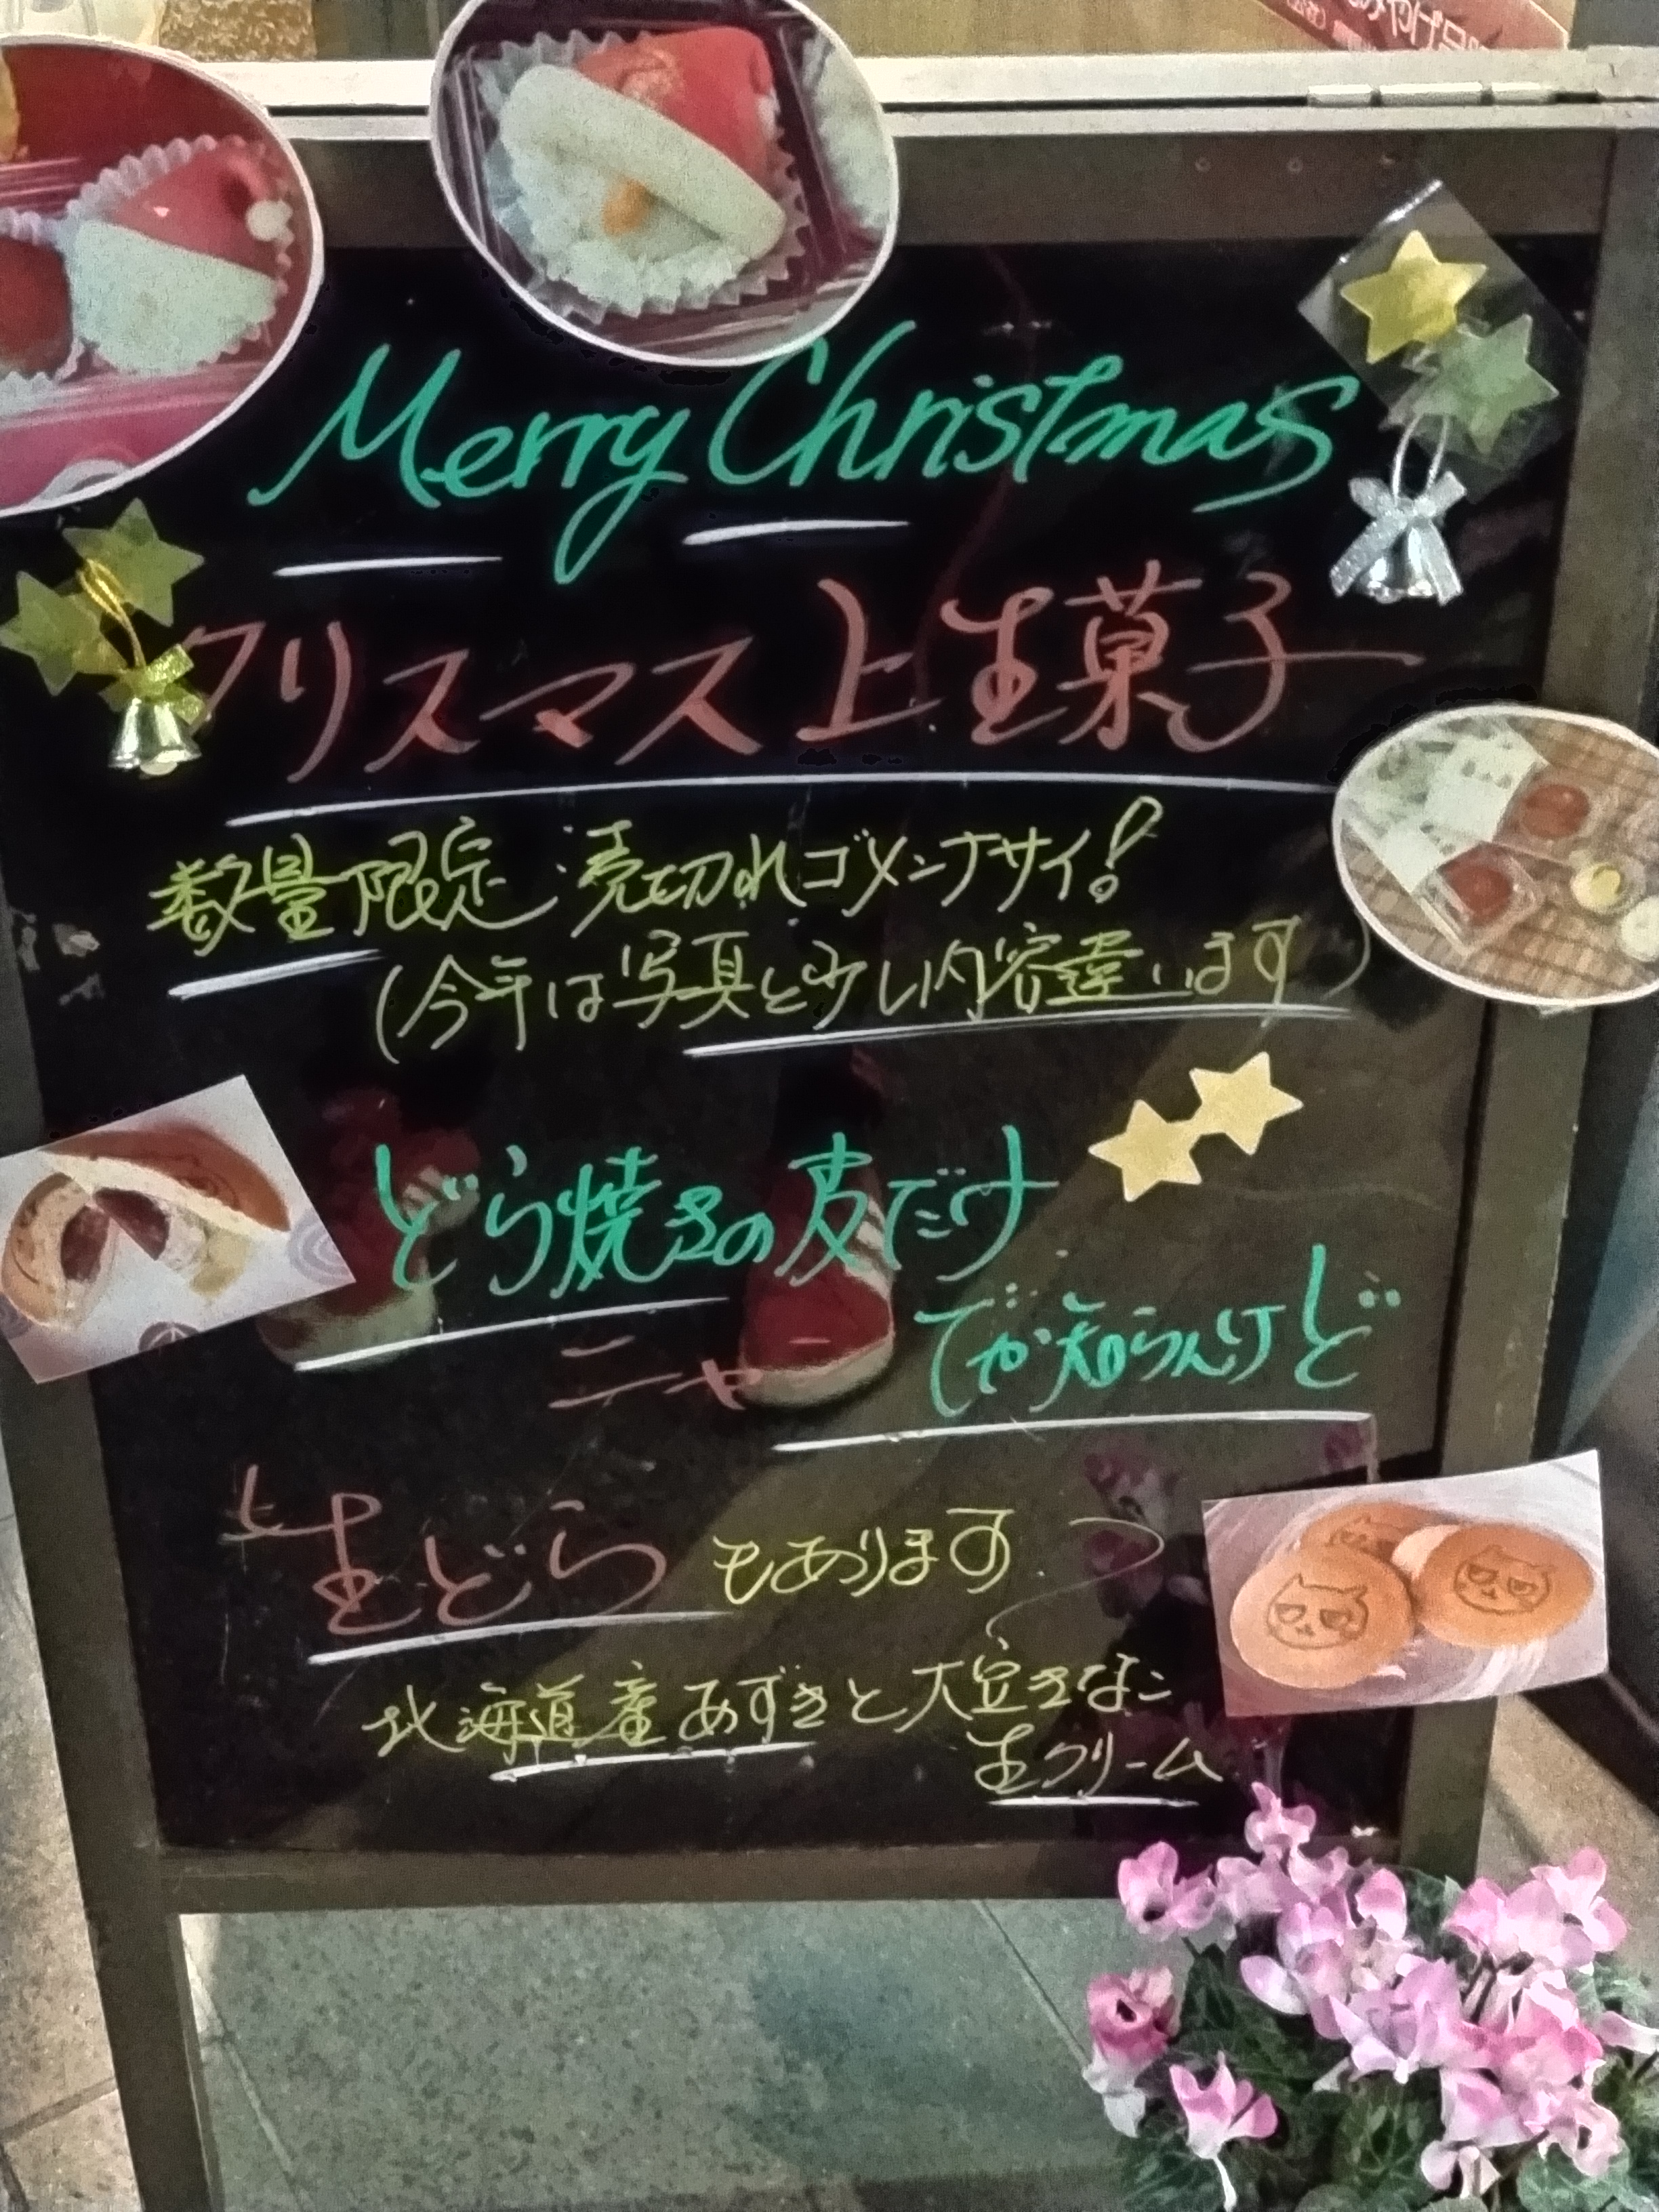 Merry Christmas
クリスマス上生菓子
数量限定 売切れゴメンナサイ!
(今年は写真と少し内容違います)
どら焼きの皮だけ
ニャ
生どらもあります
北海道産あずきと大豆きなこ
生クリーム